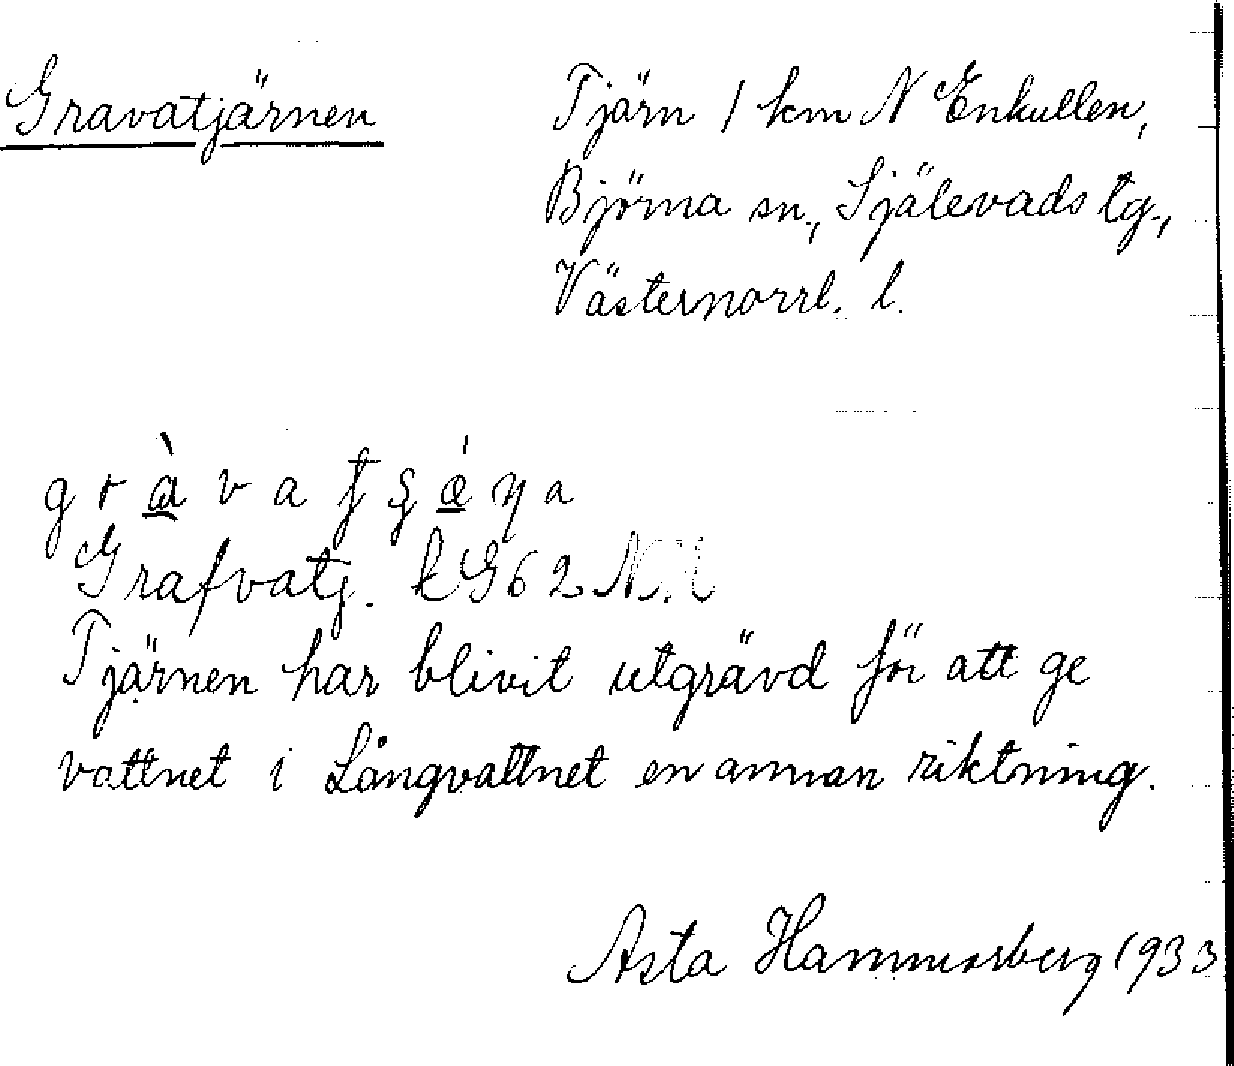 Gravatjärnen
Tjärn 1 km N Enkullen,
Björna sn., Själevads tg.,
Västernorrl. l.
Grafvatj. kG62
Tjärnen har blivit utgrävd för att ge
vattnet i Långvattnet en annan riktning.
Asta Hammarberg 1933